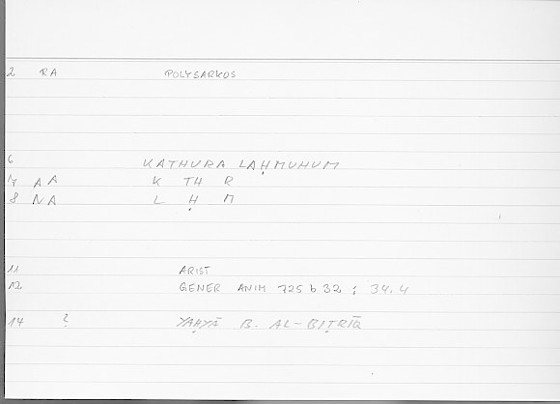 2 RA POLYSARKOS
6 KATHURA LAḤMUHUM
7 AA K TH R
8 NA L Ḥ M
11 ARIST
12 GENER ANIM 725 b 32 ; 34.4
14 ? YAḤYĀ B. AL-BIṬRĪQ